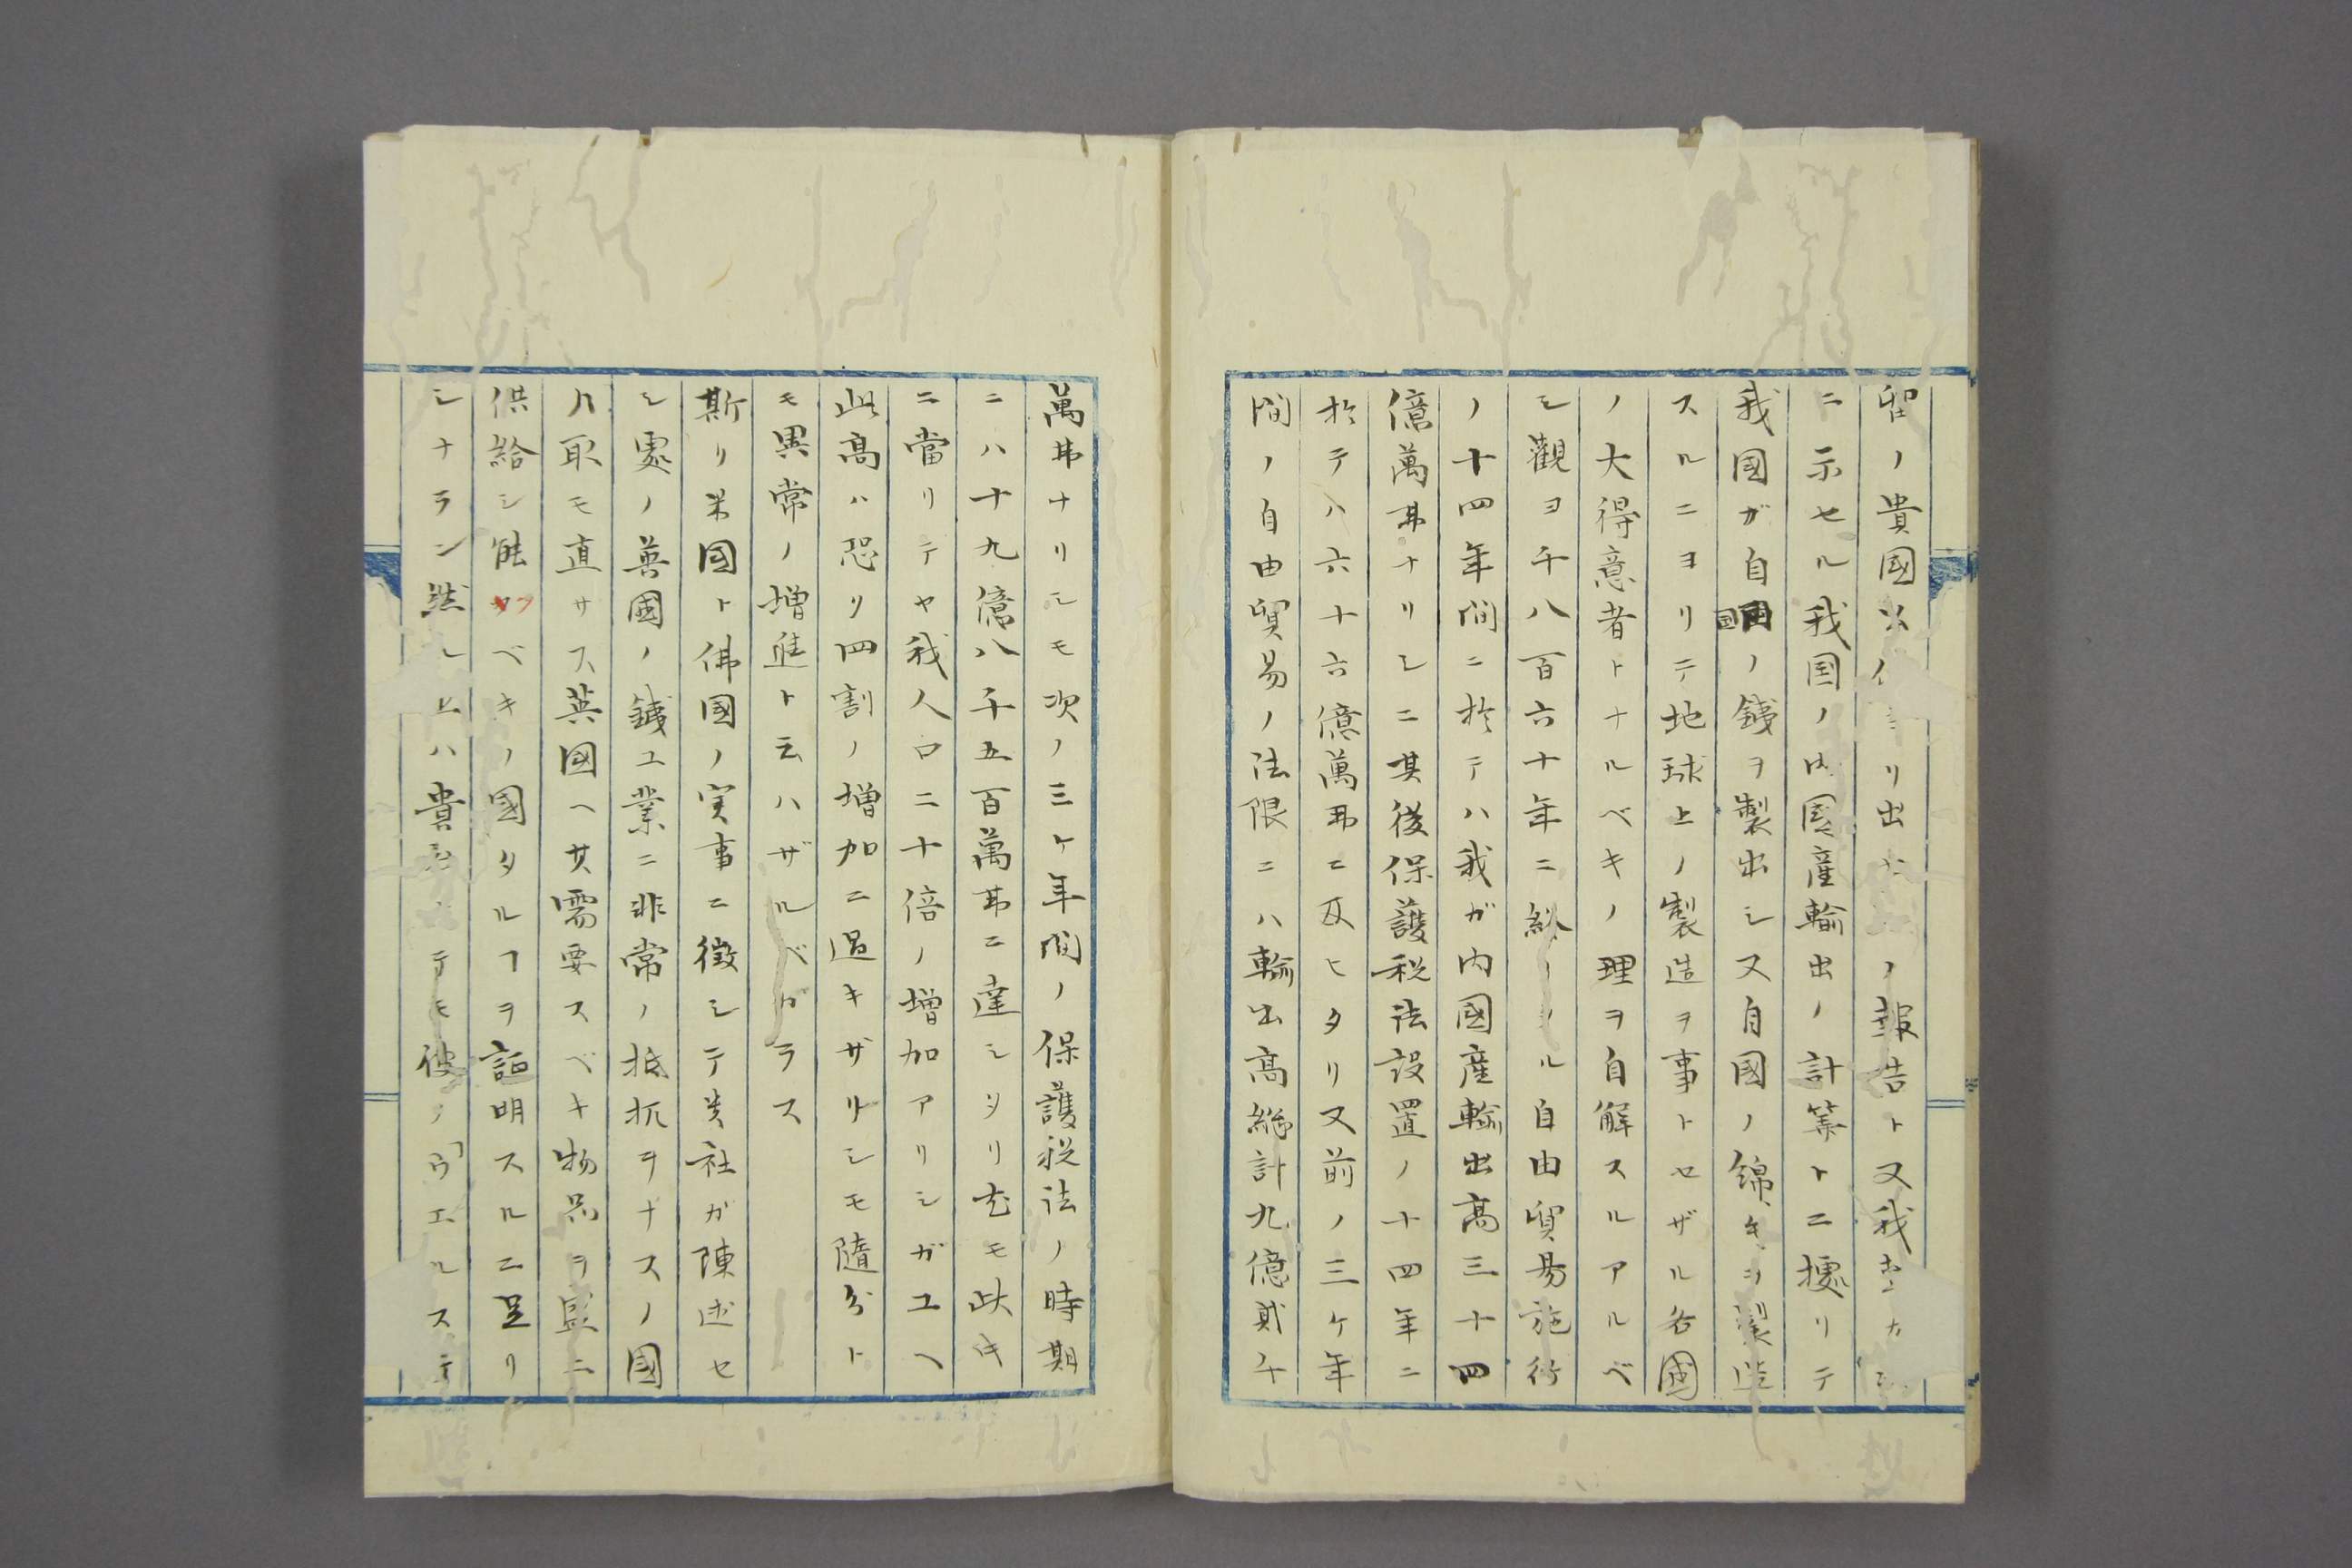 ノ貴國リ出ノ報告ト又我
ニ示セル我国ノ内国産輸出ノ計算トニ據リテ
我國ガ自国ノ銕ヲ製出シ又自國ノ綿キヲ製造
スルニヨリテ地球上ノ製造ヲ事トセザル各國
ノ大得意者トナルベキノ理ヲ自解スルアルベ
シ觀ヨ千八百六十年ニ終ル自由貿易施行
ノ十四年間ニ於テハ我ガ内國産輸出高三十四
億萬弗ナリシニ其後保護税法設置ノ十四年ニ
於テハ六十六億萬弗ニ及ヒタリ又前ノ三ケ年
間ノ自由貿易ノ法限ニハ輸出高総計九億貳千
萬弗ナリシモ次ノ三ケ年間ノ保護税法ノ時期
ニハ十九億八千五百萬弗ニ達シタリ尤モ此キ
ニ當リテヤ我人口ニ十倍ノ增加アリシガユヘ
此高ハ恐リ四割ノ増加ニ過キザリシモ隨分ト
モ異常ノ増進ト云ハザルベカラス
斯リ米国ト佛國ノ実事ニ徴シテ貴社ガ陳述セ
シ處ノ英國ノ銕工業ニ非常ノ抵抗ヲナスノ國
ハ取モ直サス英國ヘ其需要スベキ物品ヲ盛ニ
供給シ能フベキノ國タルヿヲ証明スルニ足リ
シナラン然シ上ハ貴テモ彼ノウエルステ